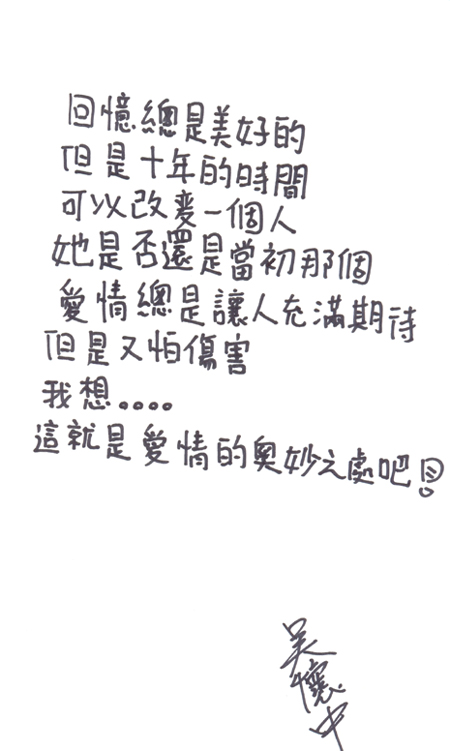 回憶總是美好的
但是十年的時間
可以改變一個人
她是否還是當初那個
愛情總是讓人充滿期待
但是又怕傷害
我想....
這就是愛情的奧妙之處吧!
吳懷中